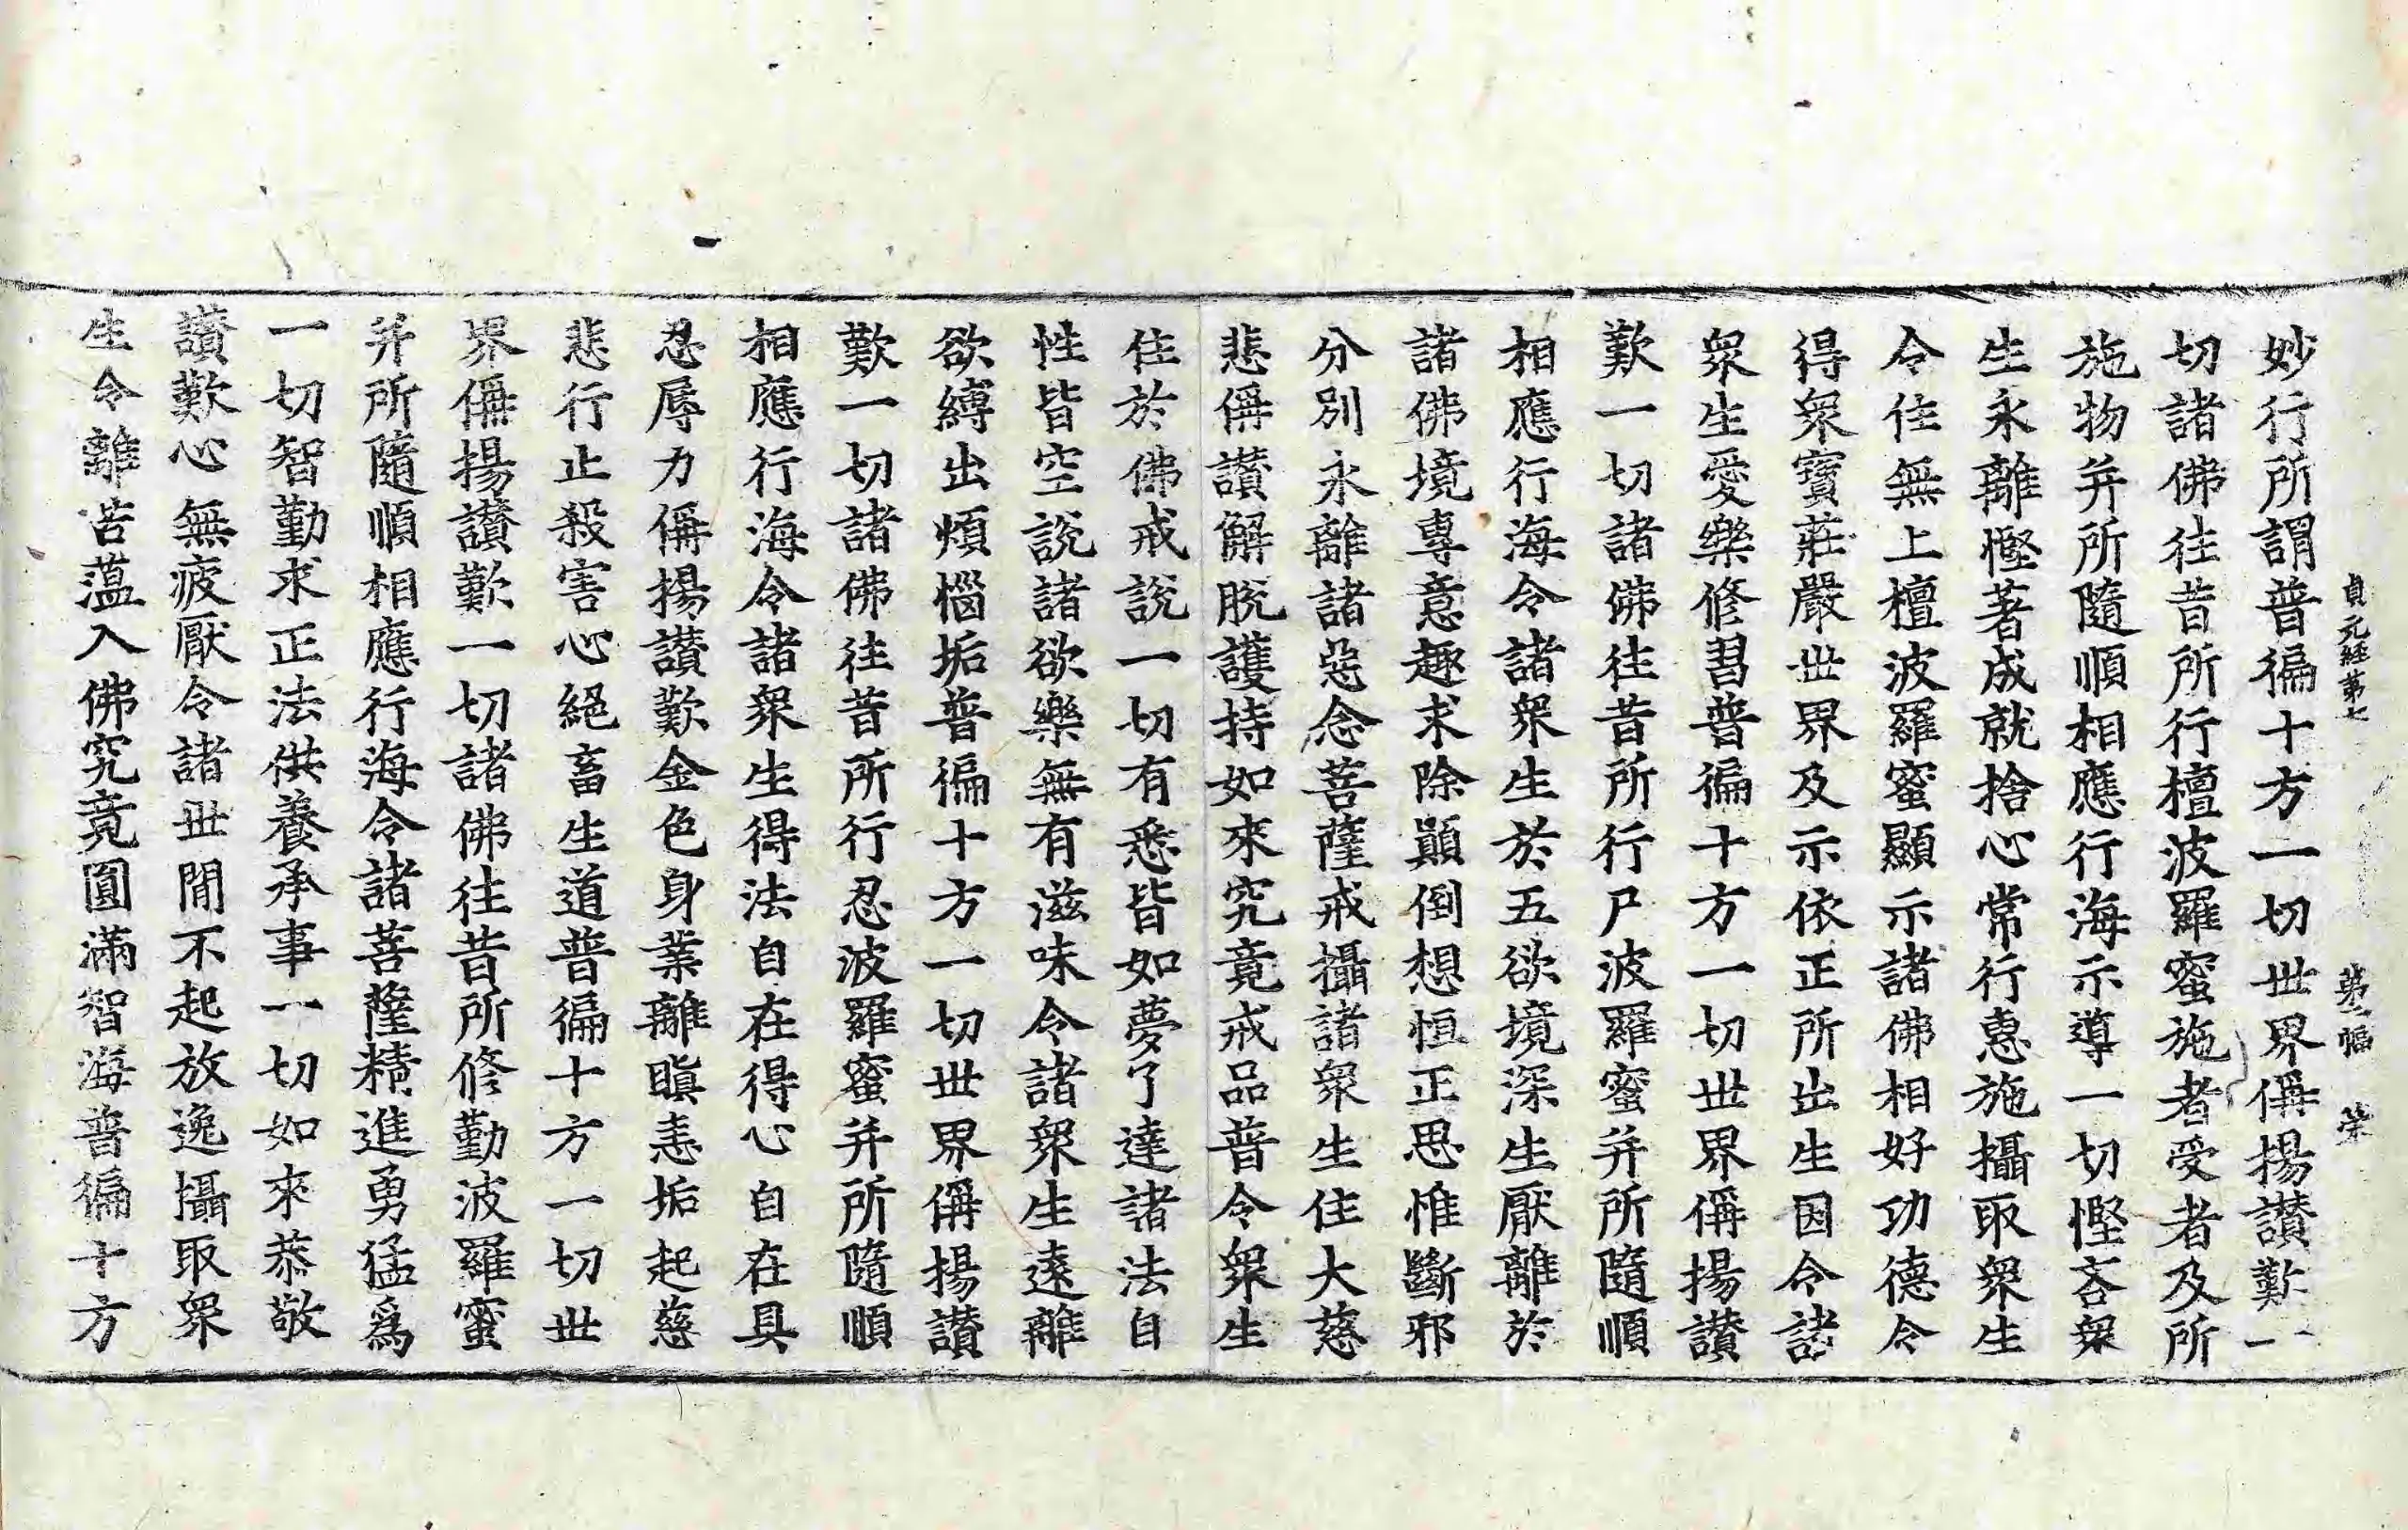 貞元経第七 第二幅 荣
妙行所謂普徧十方一切世界偁揚讃歎一
切諸佛往昔所行檀波羅蜜施者受者及所
施物并所隨順相應行海示導一切慳吝衆
生永離慳著成就捨心常行惠施攝取衆生
令住無上檀波羅蜜顯示諸佛相好功德令
得衆寶莊嚴世界及示依正所出生因令諸
衆生愛樂修習普徧十方一切世界偁揚讃
歎一切諸佛往昔所行尸波羅蜜并所隨順
相應行海令諸衆生於五欲境深生厭離於
諸佛境專意趣求除顚倒想恒正思惟斷邪
分別永離諸惡念菩薩戒攝諸衆生住大慈
悲偁讃解脫護持如來究竟戒品普令衆生
住於佛戒說一切有悉皆如夢了達諸法自
性皆空說諸欲樂無有滋味令諸衆生遠離
欲縛出煩惱垢普徧十方一切世界偁揚讃
歎一切諸佛往昔所行忍波羅蜜并所隨順
相應行海令諸衆生得法自在得心自在具
忍辱力偁揚讃歎金色身業離瞋恚垢起慈
悲行止殺害心絕畜生道普徧十方一切世
界偁揚讃歎一切諸佛往昔所修勤波羅蜜
并所隨順相應行海令諸菩薩精進勇猛爲
一切智勤求正法供養承事一切如來恭敬
讃歎心無疲厭令諸世間不起放逸攝取衆
生令離苦薀入佛究竟圓滿智海普徧十方